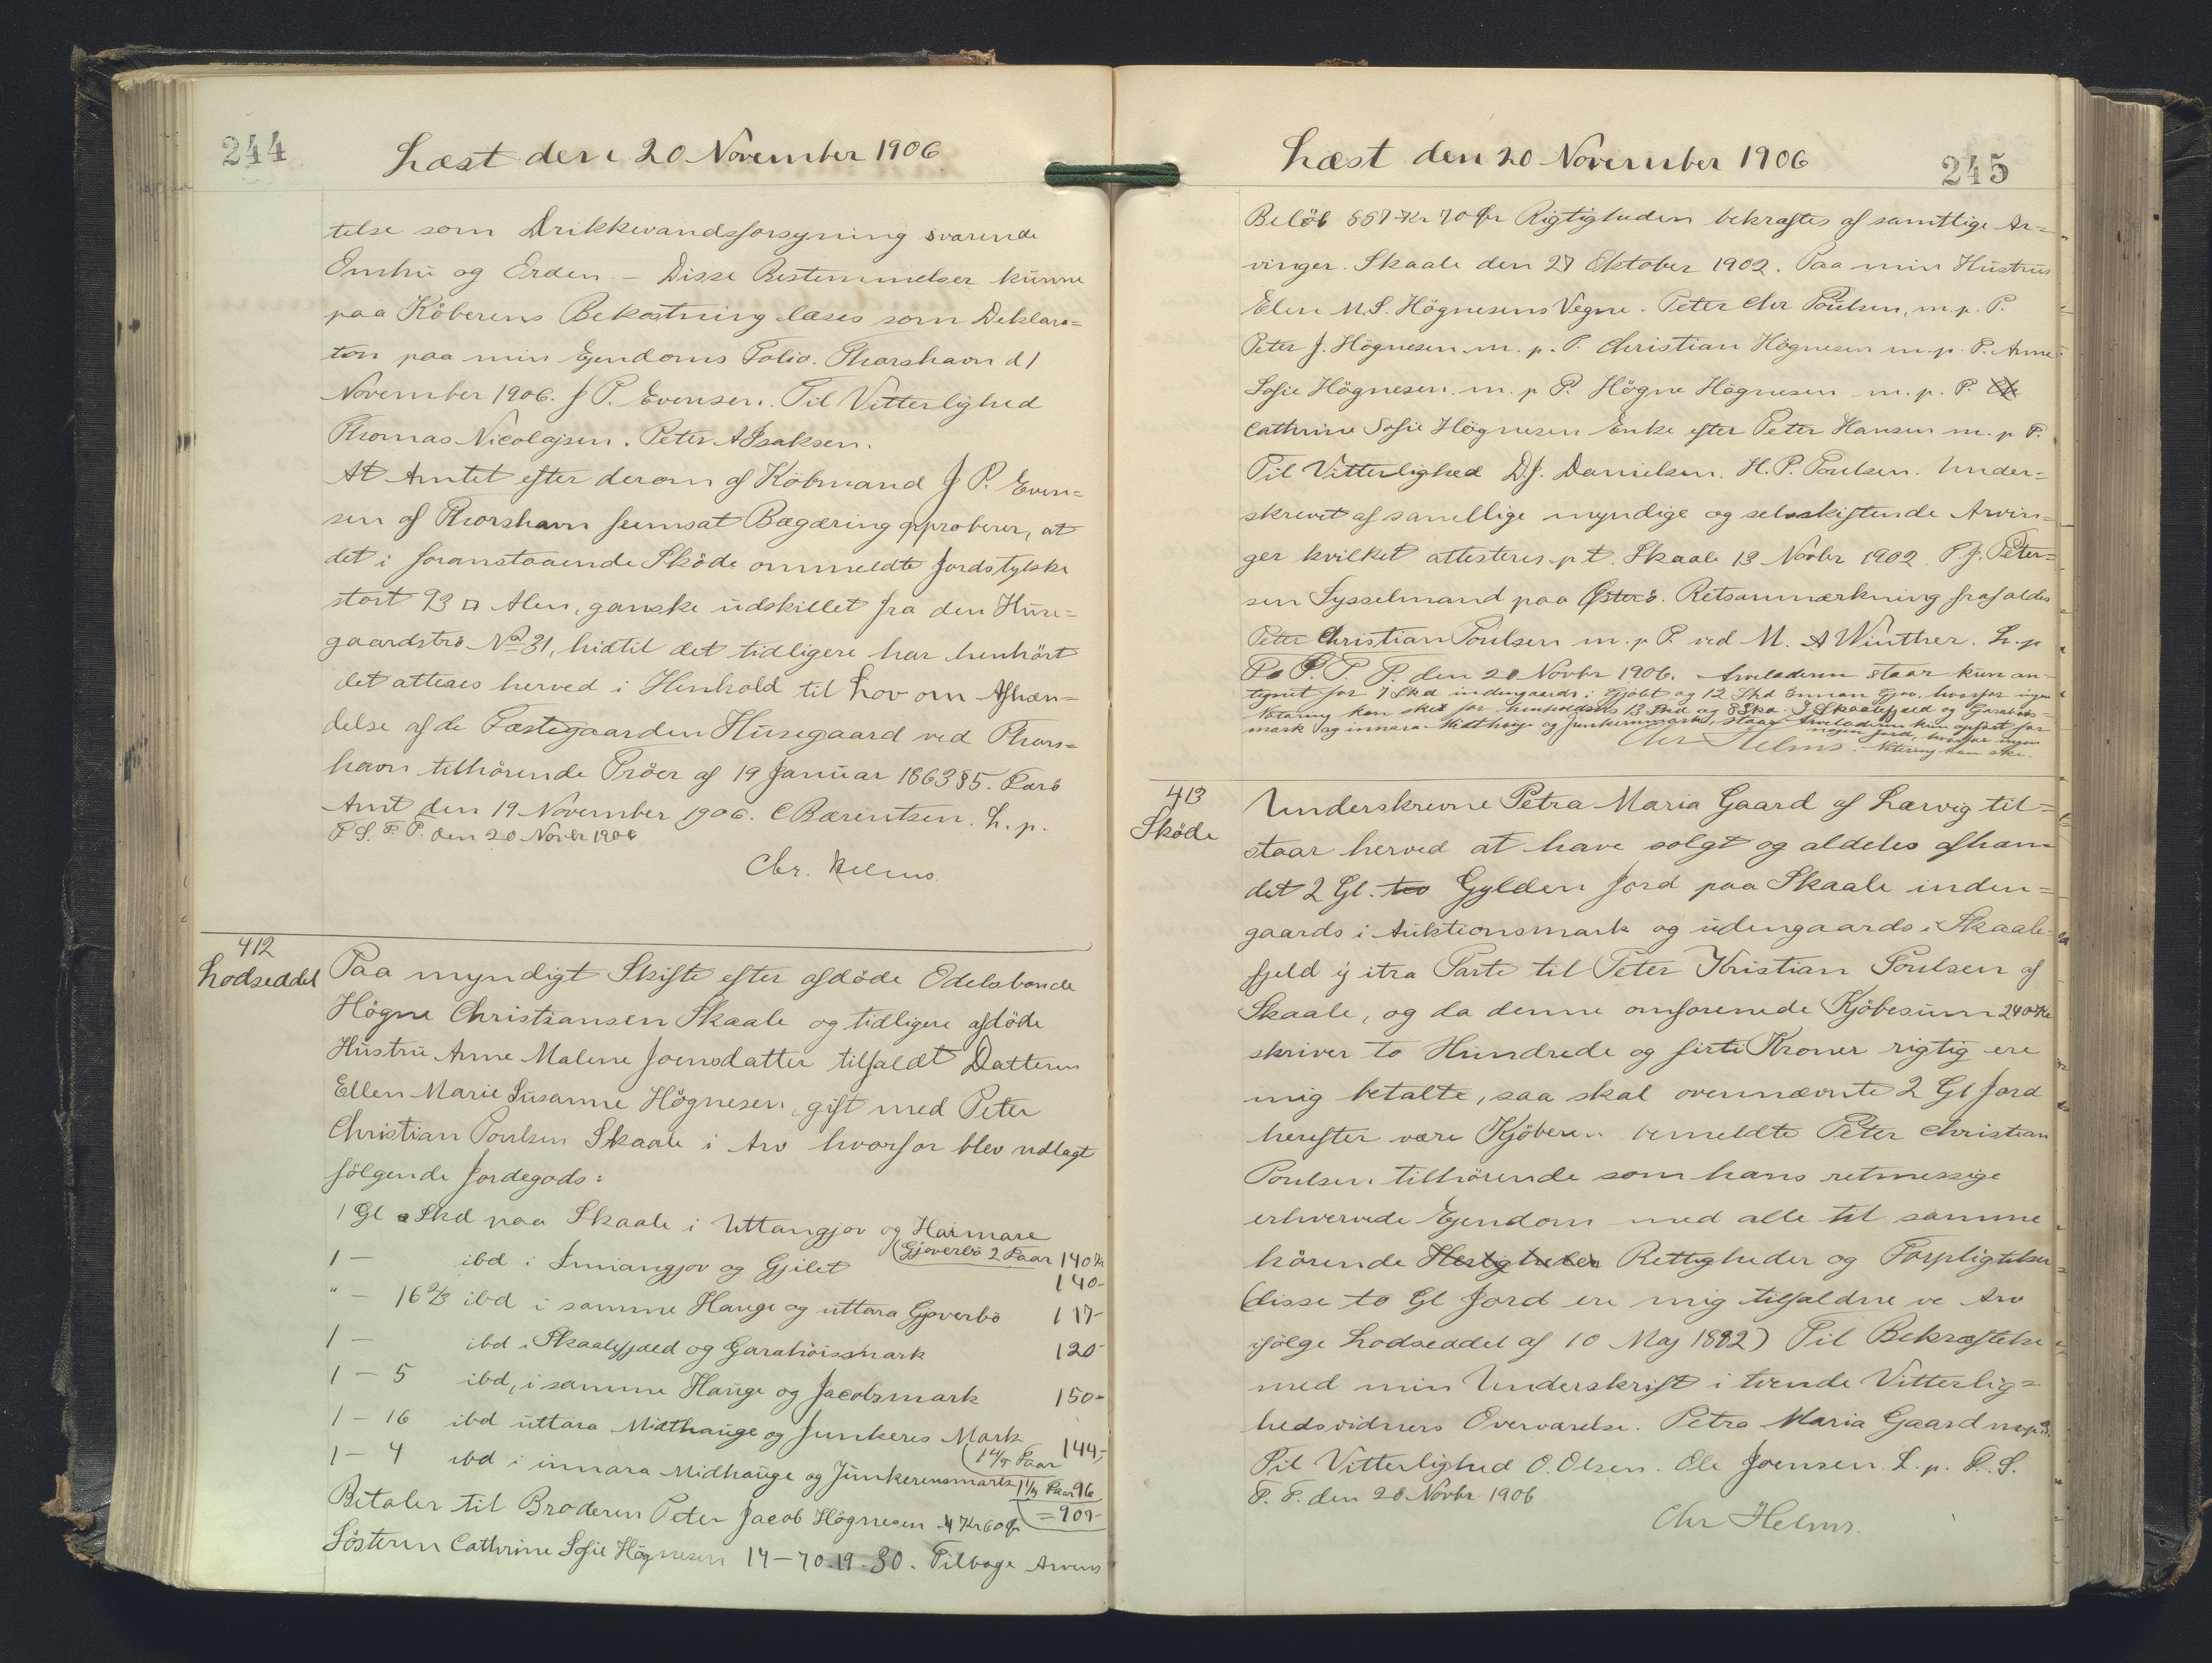 244
Læst den 20 November 1906
telse som Drikkevandsforsyning svarende
Omhu og Orden - Disse Bestemmelser kunne
paa Köberens Bekostning læses som Deklara=
tion paa min Ejendoms Folio. Thorshavn d 1
November 1906. J P. Evensen. Til Vitterlighed
Thomas Nicolajsen. Peter A Isaksen.
At Amtet efter derom af Köbmand J P. Even=
sen af Thorshavn fremsat Begæring approberer, at
det i foranstaaende Sköde ommeldte Jordstykke
stort 93 □ Alen, ganske udskillet fra den Huse=
gaardströ No 31, hidtil det tidligere har henhört
det attesteres herved i Henhold til Lov om Afhæn=
delse af de Fæstegaarden Husegaard ved Thors=
havn tilhörende Tröer af 19 Januar 1863 § 5. Færö
Amt den 19 November 1906. C Bærentsen. L. p.
F S. F. P. den 20 Novbr 1906
Chr. Helms.
412
Lodseddel
Paa myndigt Skifte efter afdöde Odelsbonde
Högne Christiansen Skaale og tidligere afdöde
Hustru Anne Malene Joensdatter tilfaldt Datteren
Ellen Marie Susanne Högnesen, gift med Peter
Christian Poulsen Skaale i Arv hvorfor blev udlagt
fölgende Jordegods:
1 Gl Skd paa Skaale i Uttangjov og Haimare
(Gjoverbö 2 Paar 140 Kr
1 — ibd i Innangjov og Gjilet 140-
" — 16 2/3 ibd i samme Hauge og uttara Gjoverbö 117-
1 — ibd i Skaalefjæld og Garahöismark 120-
1 — 5 ibd, i samme Hauge og Jacobsmark 150-
1 — 16 ibd uttara Midthauge og Junkeres Mark
(1 4/5 Paar 144,-
1 — 4 ibd i innara Midhauge og Junkerensmark 1 1/5 Paar 96
= 907-
Betaler til Broderen Peter Jacob Högnesen 4 Kr 60 Ör
Sösteren Cathrine Sofie Högnesen 14 — 70. 19 - 30. Tilbage Arvens
245
Læst den 20 November 1906
Belöb 887 Kr 70 Ör Rigtigheden bekræftes af samtlige Ar=
vinger. Skaale den 27 Oktober 1902. Paa min Hustrus
Elen M.S. Högnesens Vegne. Peter Chr Poulsen, m. p. P.
Peter J. Högnesen m. p. P. Christian Högnesen m. p. P. Anne
Sofie Högnesen m. p P. Högne Högnesen m. p. P.
Cathrine Sofie Högnesen Enke efter Peter Hansen m. p P.
Til Vitterlighed D.J. Danielsen. H. P. Poulsen. Under=
skrevet af samtlige myndige og selvskiftende Arvin=
ger hvilket attesteres p. t. Skaale 13 Novbr 1902. P J. Peter=
sen Sysselmand paa Österö. Retsanmærkning frafaldes
Peter Christian Poulsen m. p P. ved M. A Winther. L. p
F. P. den 20 Novbr 1906. Arveladeren staar kun an-
tegnet for 7 Skd indengaards i Gjilet og 12 Skd Innan Gjov, hvorfor ingen
Notering kan ske for henholdsvis 13 Skd og 8 Skd. I Skaalefjeld og Garahöis-
mark og innara Midthauge og Junkersmark, staar Arveladeren kun opfört for
nogen Jord, hvorfor ingen
Chr Helms. Notering kan ske.
413
Sköde
Underskrevne Petra Maria Gaard af Lervig til=
staar herved at have solgt og aldeles afhæn
det 2 Gl. to Gylden Jord paa Skaale inden=
gaards i Auktionsmark og udengaards i Skaale-
fjeld ij itra Parte til Peter Kristian Poulsen af
Skaale, og da denne omforenede Kjöbesum 240 Kr
skriver to Hundrede og firti Kroner rigtig ere
mig betalte, saa skal ovennævnte 2 Gl Jord
herefter være Kjöberen bemeldte Peter Christian
Poulsen tilhörende som hans retmessige
erhvervede Ejendom med alle til samme
hörende Herligheder Rettigheder og Forpligtelser
(disse to Gl Jord ere mig tilfaldne ve Arv
ifölge Lodseddel af 10 Maj 1882) Til Bekræftelse
med min Underskrift i tvende Vitterlig=
hedsvidners Overværelse. Petra Maria Gaard m p P.
Til Vitterlighed O. Olsen. Ole Joensen L. p. F. S.
P. F. den 20 Novbr 1906
Chr Helms.